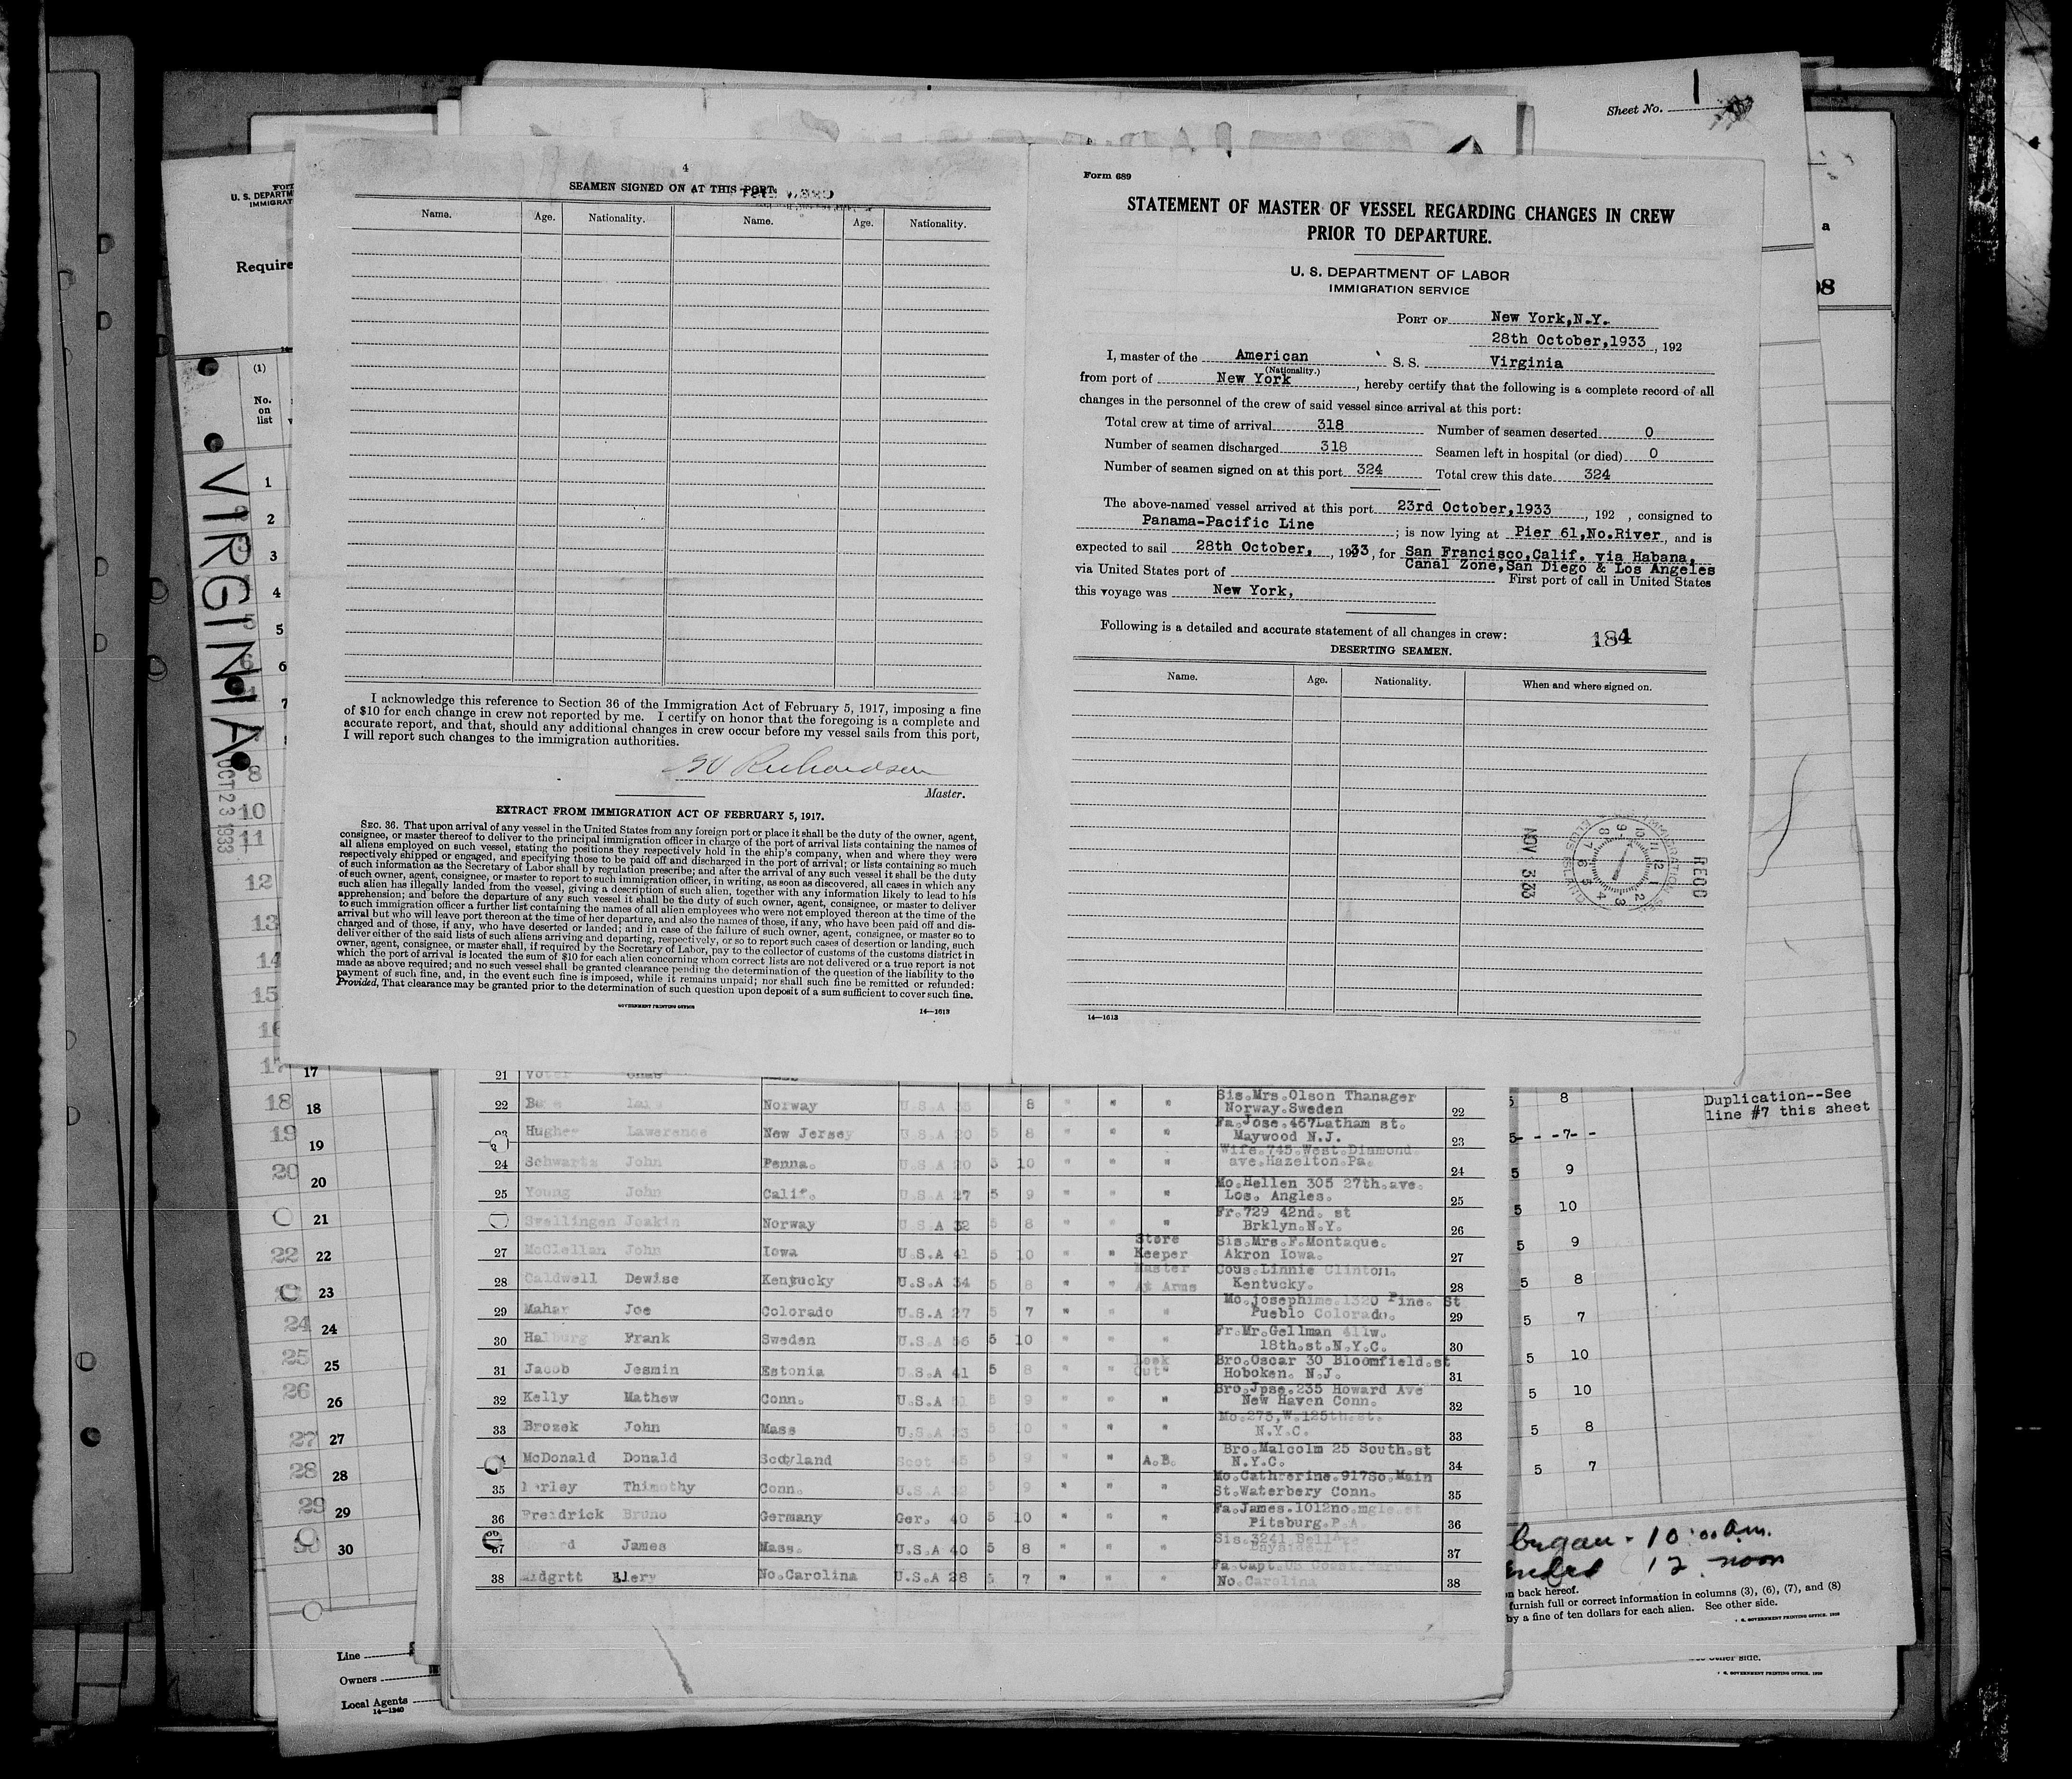 Sheet No. 1
4
SEAMEN SIGNED ON AT THIS PORT.
Name. Age. Nationality. Name. Age. Nationality.
I acknowledge this reference to Section 36 of the Immigration Act of February 5, 1917, imposing a fine
of $10 for each change in crew not reported by me. I certify on honor that the foregoing is a complete and
accurate report, and that, should any additional changes in crew occur before my vessel sails from this port,
I will report such changes to the immigration authorities.
Richardson
Master.
EXTRACT FROM IMMIGRATION ACT OF FEBRUARY 5, 1917.
SEC. 36. That upon arrival of any vessel in the United States from any foreign port or place it shall be the duty of the owner, agent,
consignee, or master thereof to deliver to the principal immigration officer in charge of the port of arrival lists containing the names of
all aliens employed on such vessel, stating the positions they respectively hold in the ship's company, when and where they were
respectively shipped or engaged, and specifying those to be paid off and discharged in the port of arrival; or lists containing so much
of such information as the Secretary of Labor shall by regulation prescribe; and after the arrival of any such vessel it shall be the duty
of such owner, agent, consignee, or master to report to such immigration officer, in writing, as soon as discovered, all cases in which any
such alien has illegally landed from the vessel, giving a description of such alien, together with any information likely to lead to his
apprehension; and before the departure of any such vessel it shall be the duty of such owner, agent, consignee, or master to deliver
to such immigration officer a further list containing the names of all alien employees who were not employed thereon at the time of the
arrival but who will leave port thereon at the time of her departure, and also the names of those, if any, who have been paid off and dis-
charged and of those, if any, who have deserted or landed; and in case of the failure of such owner, agent, consignee, or master so to
deliver either of the said lists of such aliens arriving and departing, respectively, or so to report such cases of desertion or landing, such
owner, agent, consignee, or master shall, if required by the Secretary of Labor, pay to the collector of customs of the customs district in
which the port of arrival is located the sum of $10 for each alien concerning whom correct lists are not delivered or a true report is not
made as above required; and no such vessel shall be granted clearance pending the determination of the question of the liability to the
payment of such fine, and, in the event such fine is imposed, while it remains unpaid; nor shall such fine be remitted or refunded:
Provided, That clearance may be granted prior to the determination of such question upon deposit of a sum sufficient to cover such fine.
GOVERNMENT PRINTING OFFICE 14—1613
Form 689
STATEMENT OF MASTER OF VESSEL REGARDING CHANGES IN CREW
PRIOR TO DEPARTURE.
U. S. DEPARTMENT OF LABOR
IMMIGRATION SERVICE
PORT OF New York,N.Y.
28th October,1933, 192
I, master of the American S. S. Virginia
(Nationality.)
from port of New York, hereby certify that the following is a complete record of all
changes in the personnel of the crew of said vessel since arrival at this port:
Total crew at time of arrival 318 Number of seamen deserted 0
Number of seamen discharged 318 Seamen left in hospital (or died) 0
Number of seamen signed on at this port 324 Total crew this date 324
The above-named vessel arrived at this port 23rd October,1933, 192 , consigned to
Panama-Pacific Line; is now lying at Pier 61,No.River, and is
expected to sail 28th October, , 1933, for San Francisco,Calif. via Habana,
Canal Zone,San Diego & Los Angeles
via United States port of First port of call in United States
this voyage was New York,
Following is a detailed and accurate statement of all changes in crew: 184
DESERTING SEAMEN.
Name. Age. Nationality. When and where signed on.
RECD
NOV 3 33
14—1613
U. S. DEPARTM
IMMIGRAT
Require
(1)
No.
on
list
VIRGINIA
OCT 23 1933
1
2
3
4
5
6
7
8
10
11
12
13
14
15
17
18
19
20
21
22
23
24
25
26
27
28
29
30
21
22 Norway U.S.A 8 " " " Sis.Mrs.Olson Thanager
Norway.Sweden 22
Hughes Lawerence New Jersey U.S.A 20 5 8 " " " Fa.Jose.467Latham st.
Maywood N.J. 23
24 Schwartz John Penna. U.S.A 20 5 10 " " " Wife.745.West.Diamond.
ave.Hazelton.Pa. 24
25 Young John Calif. U.S.A 27 5 9 " " " Mo.Hellen 305 27th.ave.
Los. Angles. 25
Swellingen Joakin Norway U.S.A 32 5 8 " " " Fr.729 42nd. st
Brklyn.N.Y. 26
27 McClellan John Iowa U.S.A 41 5 10 " " Store
Keeper Sis.Mrs.F.Montaque.
Akron Iowa. 27
28 Caldwell Dewise Kentucky U.S.A 34 5 8 " " Master
At Arms Cous.Linnie Clinton.
Kentucky. 28
29 Mahar Joe Colorado U.S.A 27 5 7 " " " Mo.josephime.1320 Pine. St
Pueblo Colorado. 29
30 Halburg Frank Sweden U.S.A 56 5 10 " " " Fr.Mr.Gellman 411w.
18th.st.N.Y.C. 30
31 Jacob Jesmin Estonia U.S.A 41 5 8 " " Look
Out" Bro.Oscar 30 Bloomfield.st
Hoboken. N.J. 31
32 Kelly Mathew Conn. U.S.A 5 9 " " " Bro.Jpse.235 Howard Ave
New Haven Conn. 32
33 Brozek John Mass U.S.A 23 5 10 " " " Mo.273,W.125th.st.
N.Y.C. 33
McDonald Donald Scotland Scot 45 5 9 " " A.B. Bro.Malcolm 25 South.st
N.Y.C. 34
35 Thimothy Conn. U.S.A 5 9 " " " Mo.Cathrerine.917So.Main
St.Waterbery Conn. 35
36 Freidrick Bruno Germany Ger. 40 5 10 " " " Fa.James.1012no.
Pitsburg.P.A. 36
37 James Mass. U.S.A 40 5 8 " " " Sis.3241
37
38 No.Carolina U.S.A 28 5 7 " " " Fa.Capt.
No.Carolina 38
5 8 Duplication--See
line #7 this sheet
5- - -7- -
5 9
5 10
5 9
5 8
5 7
5 10
5 10
5 8
5 7
began - 10:00 a.m.
ended 12 noon
on back hereof.
furnish full or correct information in columns (3), (6), (7), and (8)
by a fine of ten dollars for each alien. See other side.
GOVERNMENT PRINTING OFFICE
other side.
U. S. GOVERNMENT PRINTING OFFICE
Line
Owners
Local Agents
14—1240